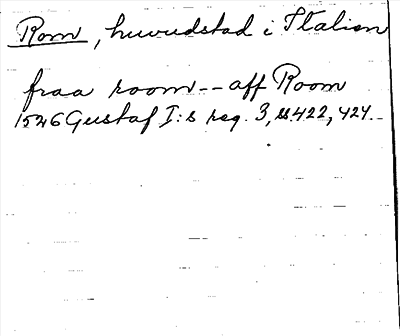 Rom, huvudstad i Italien
fraa room -- aff Room
1526 Gustaf I:s reg. 3, ss 422, 424.